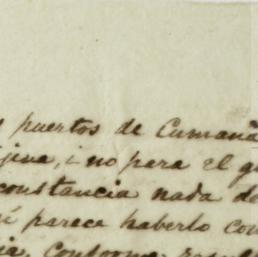 puertos de Cumaná
jena, i no para el
constancia nada de
parece haberlo con